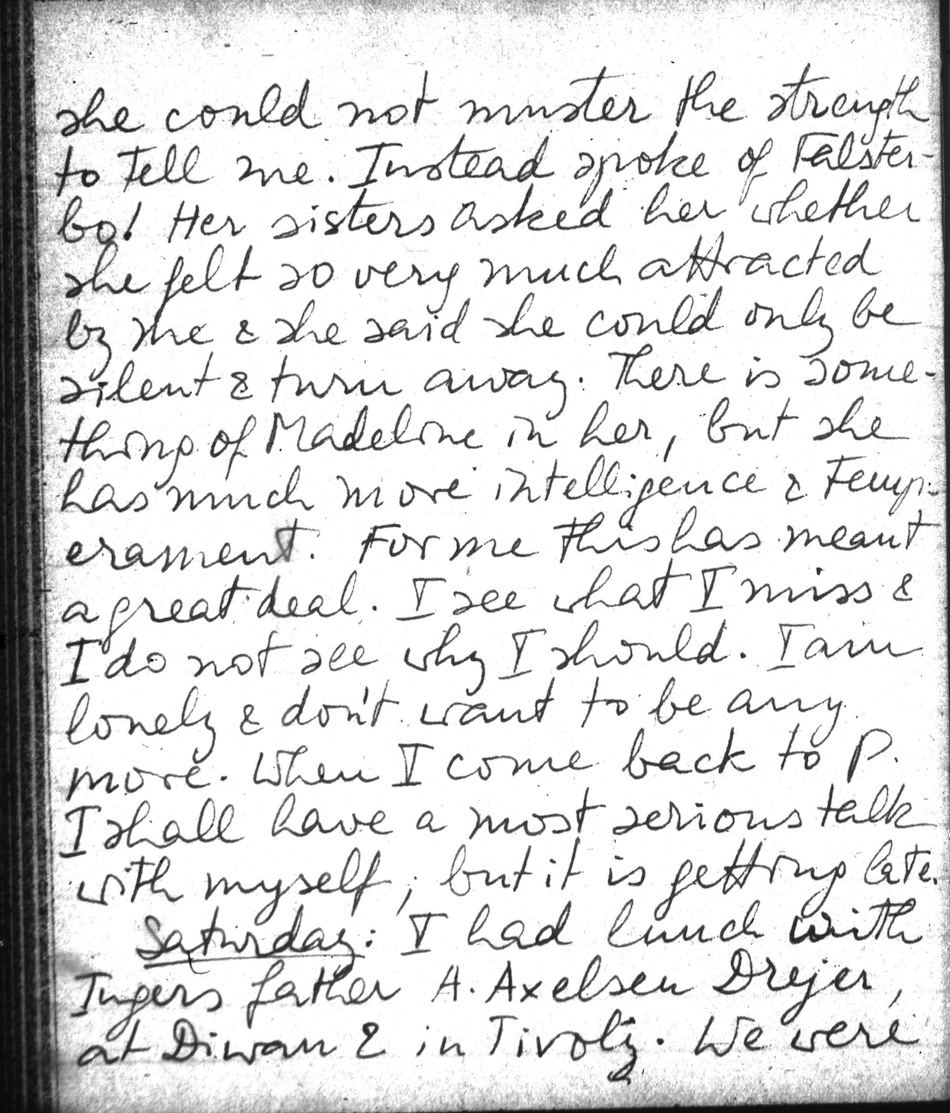 she could not muster the strength
to tell me. Instead spoke of Falster-
bo! Her sisters asked her whether
she felt so very much attracted
by me & she said she could only be
silent & turn away. There is some-
thing of Madeline in her, but she
has much more intelligence & temp-
erament. For me this has meant
a great deal. I see what I miss &
I do not see why I should. I am
lonely & don't want to be any
more. When I come back to P.
I shall have a most serious talk
with myself, but it is getting late.
Saturday: I had lunch with
Ingers father A. Axelsen Drejer,
at Diwan 2 in Tivoly. We were